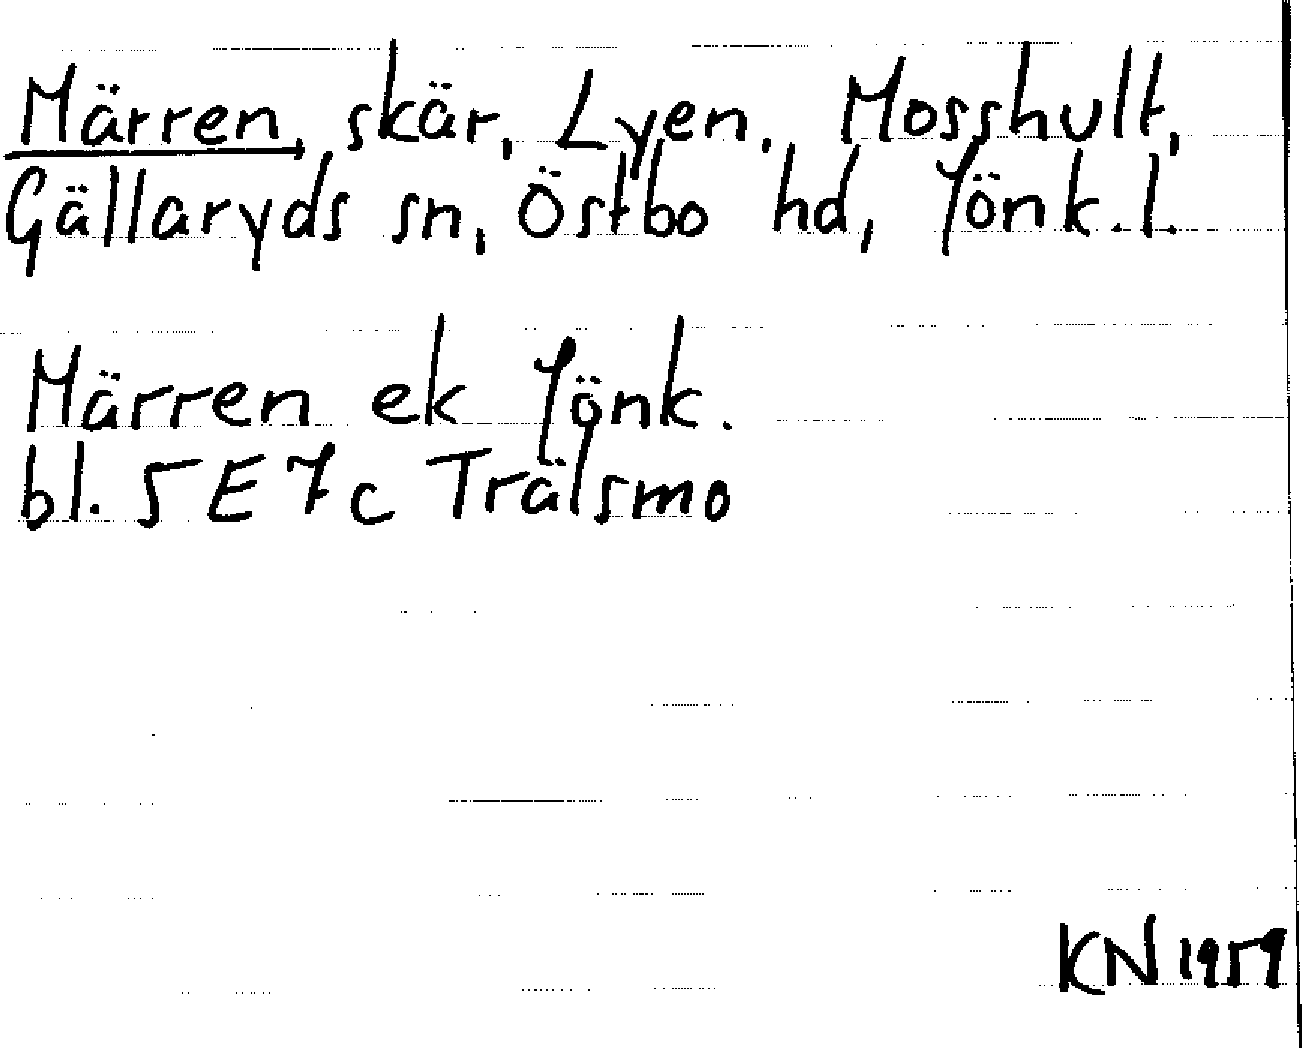 Märren, skär, Lyen, Mosshult,
Gällaryds sn, Östbo hd, Jönk. l.
Märren ek Jönk.
bl. 5E7c Trälsmo
KN 1959